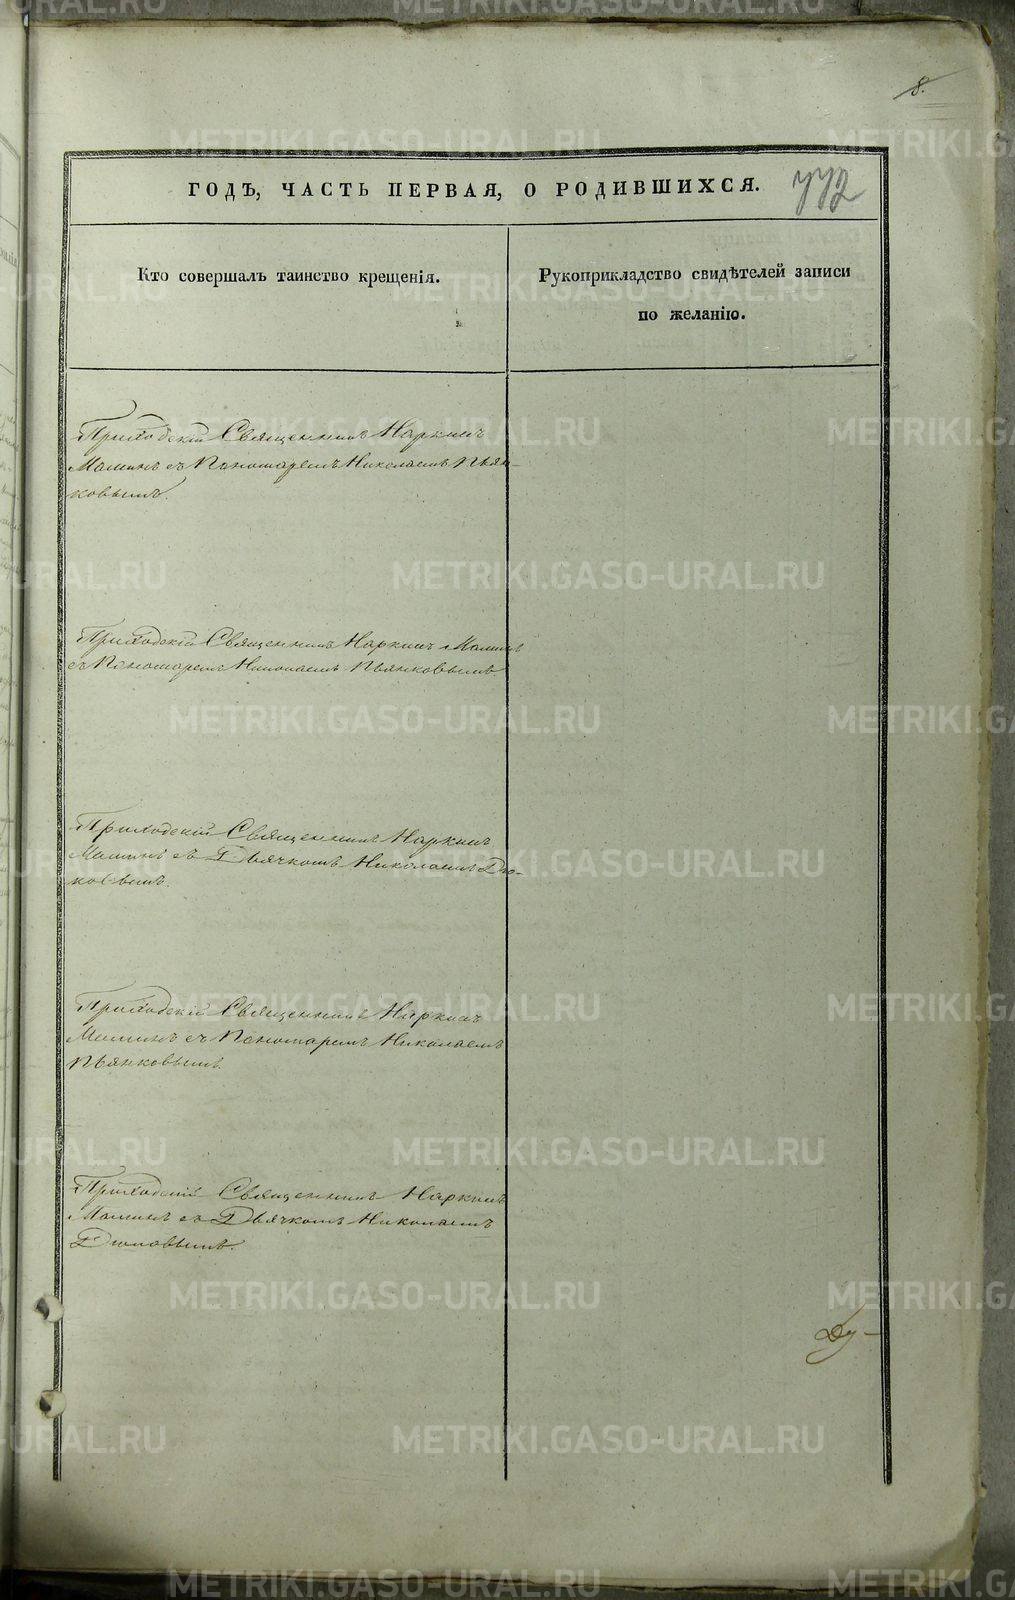 8.
ГОДЪ, ЧАСТЬ ПЕРВАЯ, О РОДИВШИХСЯ.
772
Кто совершалъ таинство крещенія.
Рукоприкладство свидѣтелей записи
по желанію.
Приходскій Священникъ Наркисъ
Маминъ съ Пономаремъ Николаемъ Пьян-
ковымъ.
Приходскій Священникъ Наркисъ Маминъ
съ Пономаремъ Николаемъ Пьянковымъ.
Приходскій Священникъ Наркисъ
Маминъ съ Дьячкомъ Николаемъ Дю-
ковымъ.
Приходскій Священникъ Наркисъ
Маминъ съ Пономаремъ Николаемъ
Пьянковымъ.
Приходскій Священникъ Наркисъ
Маминъ съ Дьячкомъ Николаемъ
Дюковымъ.
Ду-
METRIKI.GASO-URAL.RU